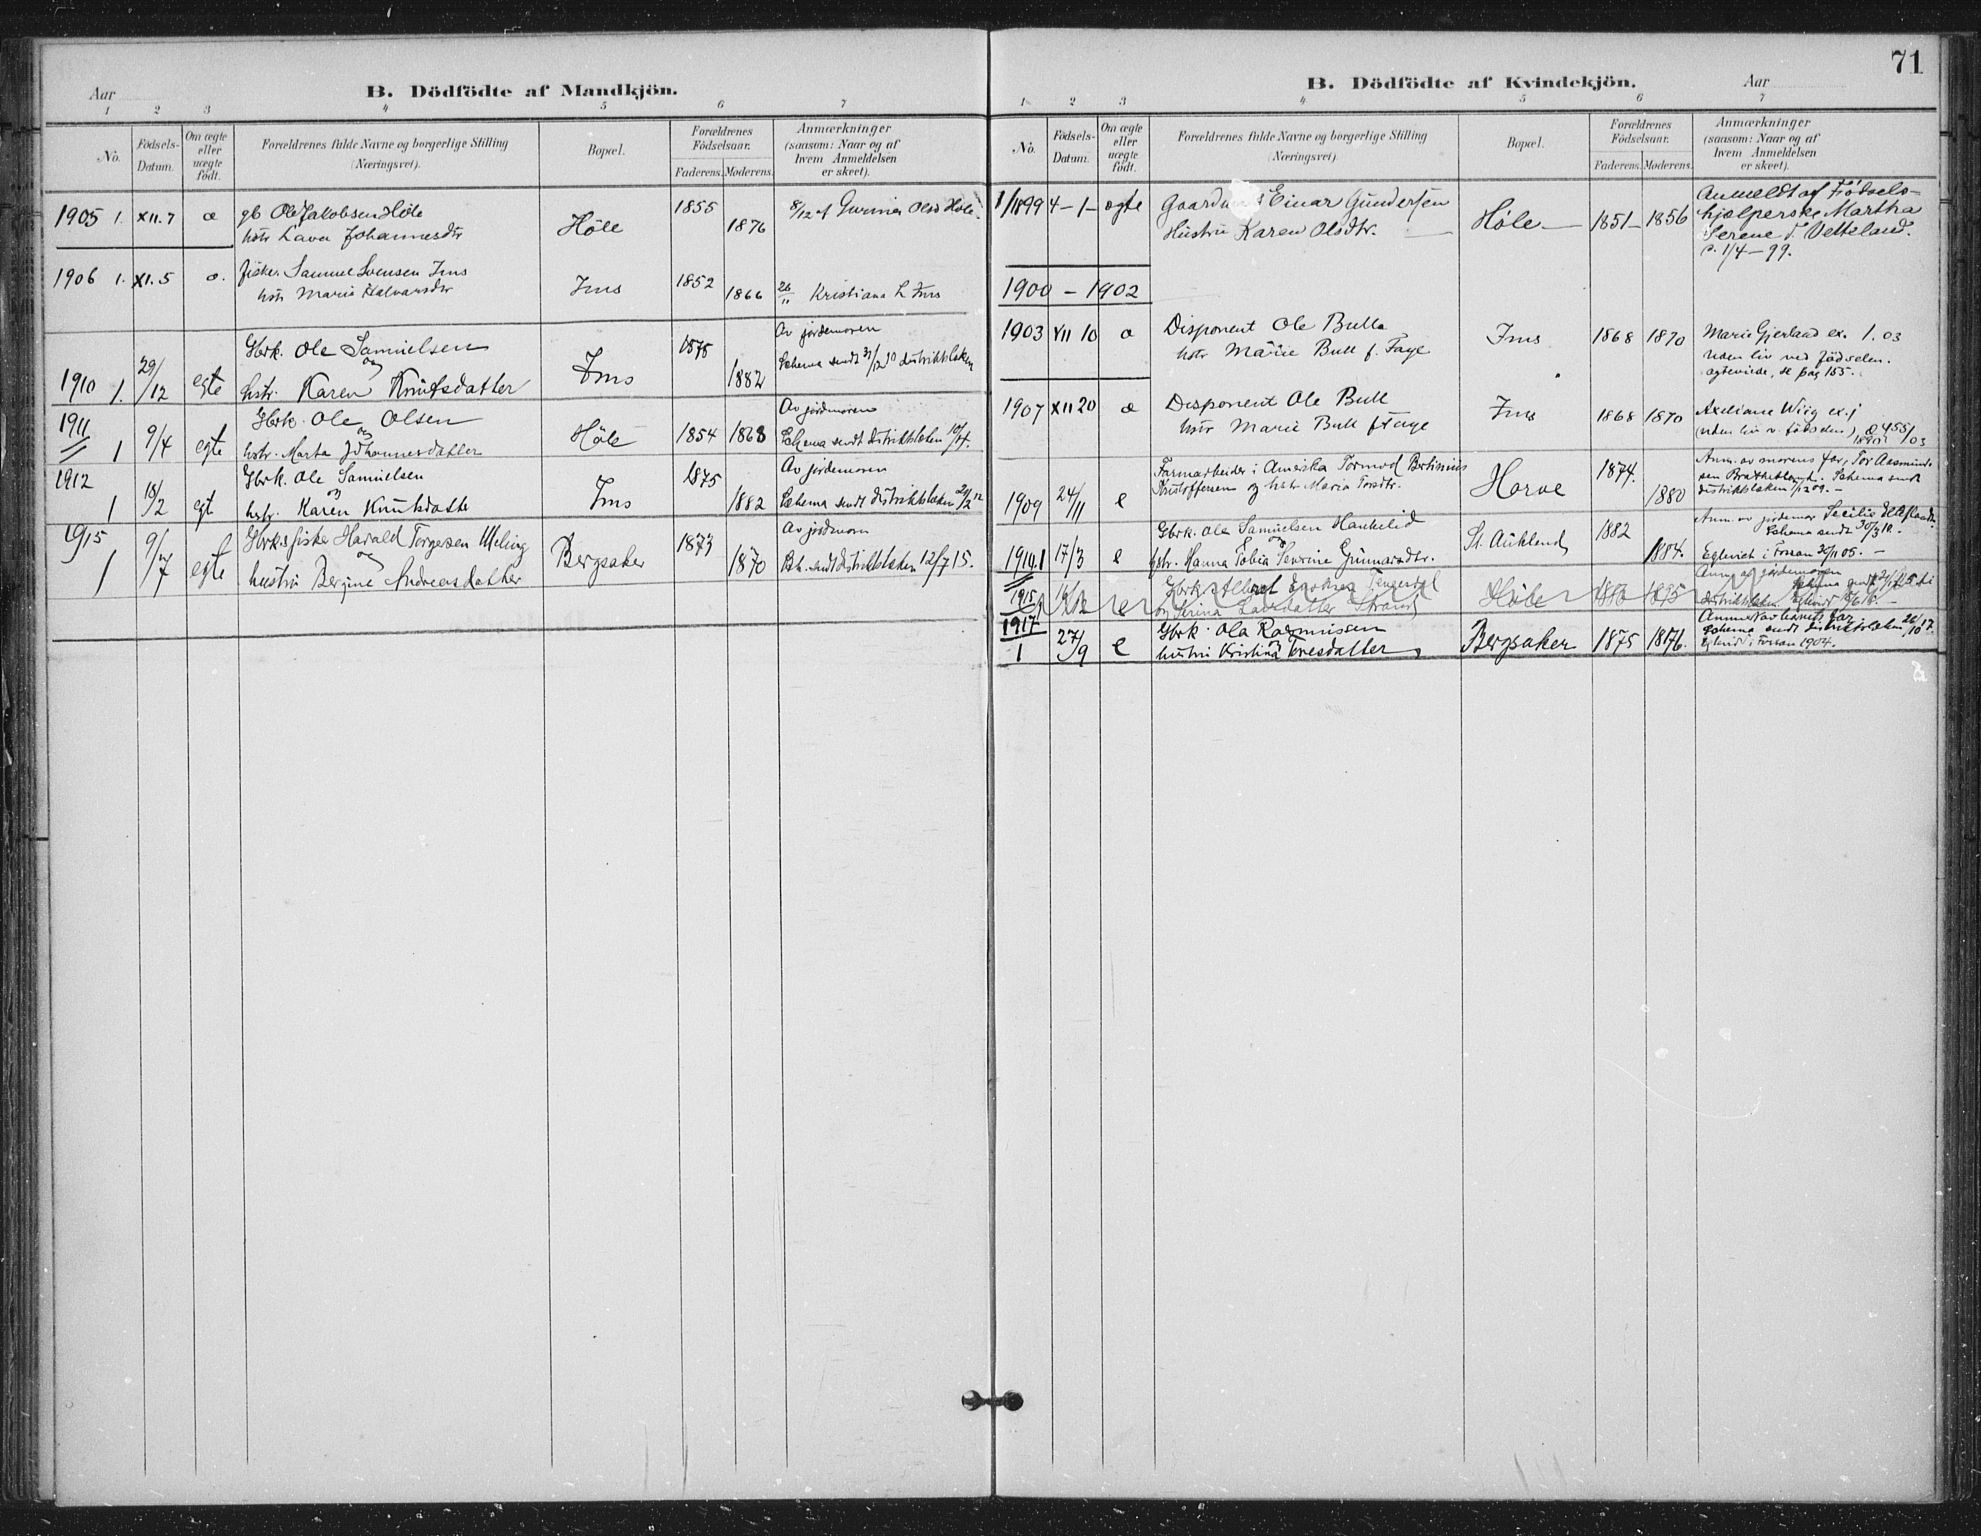 71
Aar
B. Dödfödte af Mandkjön.
1 2 3 4 5 6 7
No.
Fødsels-
Datum.
Om ægte
eller
uægte
født.
Forældrenes fulde Navne og borgerlige Stilling
(Næringsvei).
Bopæl.
Forældrenes
Fødselsaar.
Faderens. Moderens.
Anmærkninger
(saasom: Naar og af
hvem Anmeldelsen
er skeet).
1905 1. XII.7 æ gb Ole Jakobsen Høle Høle 1855 8/12 af
hstr Johannesdtr 1876
1906 1. XI.5 æ. fisker Samuel Svensen Ims Ims 1852
hstr Marie Halvarsdtr 1866 26/11 Kristiana Ims
Gbrk. Ole Samuelsen 1875 Av jordemoren
og Schema sendt 31/12 10 distriktslæken
1910 1. 29/12 egte hstr. Karen Knutsdatter Ims 1882
1911 Gbrk. Ole Olsen Av jordmoren
og
1 9/4 egte hstr. Marta Johannesdatter Høle 1854 1868 Schema sendt distriktslæken 10/4.
1912 Gbrk. Ole Samuelsen 1875 Av jordemoren
og
1 18/2 egt hstr. Karen Knutsdatte Ims 1882 Schema sendt distriktslæken 21/2 12
1915 Harald Torgersen Meling 1873 Av jordmoren
og
1 9/7 egte hustru Bergine Andreasdatter Bergsaker 1870 sendt distriktslæken 12/7 15.
B. Dödfödte af Kvindekjön.
Aar
1 2 3 4 5 6 7
No.
Fødsels-
Datum.
Om ægte
eller
uægte
født.
Forældrenes fulde Navne og borgerlige Stilling
(Næringsvei).
Bopæl.
Forældrenes
Fødselsaar.
Faderens. Moderens.
Anmærkninger
(saasom: Naar og af
hvem Anmeldelsen
er skeet).
1/1899 4-1- ægte Einar Gundersen Høle 1851 1856 Anmeldt af Fødsels-
Hustru Karen Olsdtr. hjælperske Martha
Serene Vetteland.
1/4-99.
1900 - 1902
1903 XII 10 æ Disponent Ole Bull Ims 1868 1870 Marie Gjerland ex. 1.03
hstr Marie Bull f. Faye uden liv ved fødselen.
ægteviede, se pag 155.
1907 XII 20 æ Disponent Ole Bull Ims 1868 1870 Axeliane Wiig ex.j
hstr Marie Bull f Faye (uden liv v. fødselen)
Farmarbeider i Amerika Tormod Bertinius 1874. Anm. av morens far, Tor Aasmund-
1909 24/11 e Kristoffersen og hstr Maria Torsdtr. Horve 1880 Schema sendt
distriktslæken
Gbrk. Ole Samuelsen Haukelid 1882 Anm. av jordemor Secilie
og Schema sendt
1914.1 17/3 e hstr. Hanna Tobia Severine Gunnarsdtr. St. Aukland 1884. Egteviet i Forsan
1915 Gbrk. Albert Anm. af jordemoren
e Serina Larsdatter Strand Høle 1895
1917 Gbrk. Ola Rasmussen Anmeldt av barnets far
og Schema sendt distriktslæken 26/10 17.
1 27/9 e hustru Kristina Bergsaker 1875 1876. Egtevid i Forsan 1904.